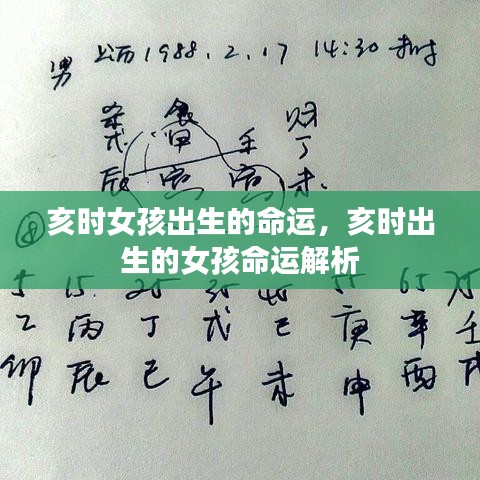 男 公历1988.2.17 14:30未时
杀 食 财
戊 甲 壬 丁
辰 寅 寅 未
⑧
亥时女孩出生的命运，亥时出
生的女孩命运解析
5 15 25 35 45 55 65 75
乙 丙 丁 戊 己 庚 辛 壬
卯 辰 巳 午 未 申 酉 戌